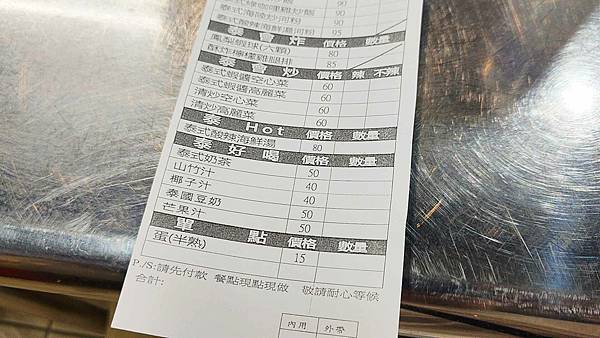 泰式綠咖哩雞炒飯 90
泰式海陸炒河粉 90
泰式酸辣海鮮湯河粉 95
泰會炸 價格 數量
鳳梨蝦球(六顆) 80
酥炸檸檬雞腿排 85
泰會炒 價格 辣 不辣
泰式蝦醬空心菜 60
泰式蝦醬高麗菜 60
清炒空心菜 60
清炒高麗菜 60
泰 Hot 價格 數量
泰式酸辣海鮮湯 80
泰好喝 價格 數量
泰式奶茶 50
山竹汁 40
椰子汁 40
泰國豆奶 50
芒果汁 50
單點 價格 數量
蛋(半熟) 15
P./S:請先付款 餐點現點現做 敬請耐心等候
合計:
內用 外帶